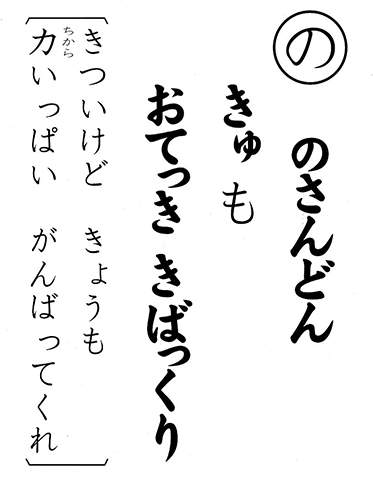 の
のさんどん
きゅも
おてっき きばっくり
きついけど きょうも
力いっぱい がんばってくれ
ちから